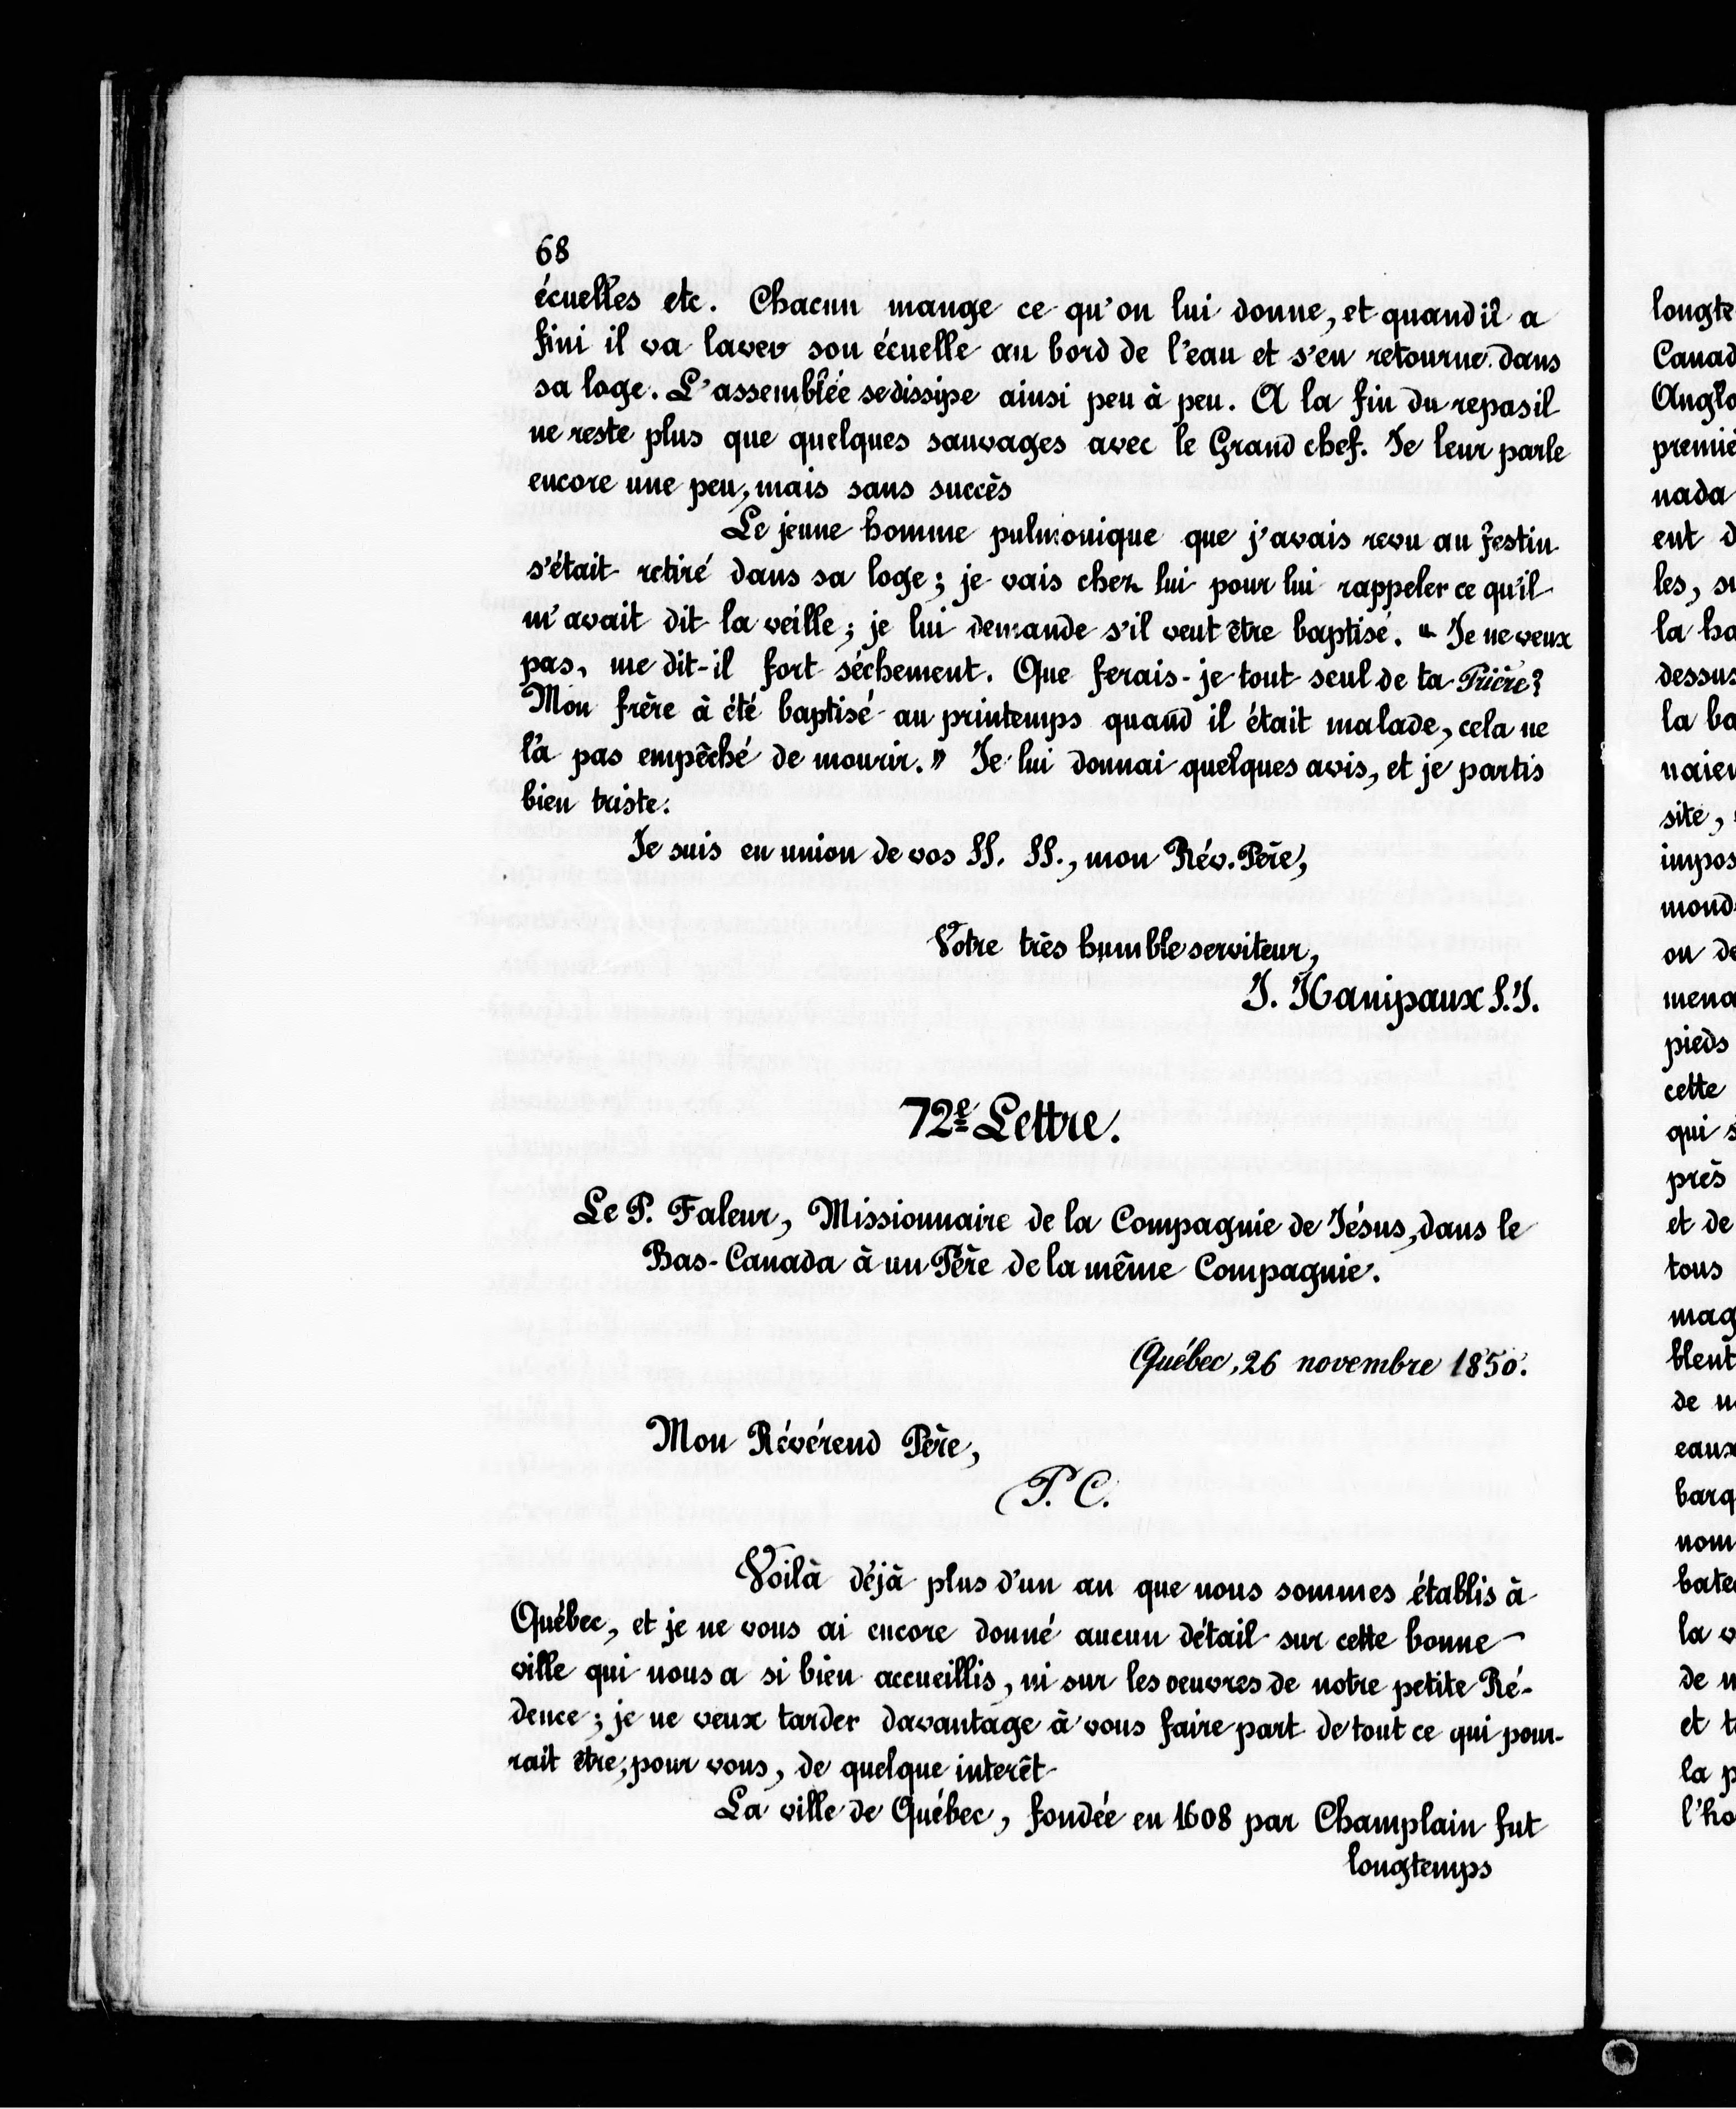 68
écuelles etc. Chacun mange ce qu'on lui donne, et quand il a
fini il va laver son écuelle au bord de l'eau et s'en retourne dans
sa loge. L'assemblée se dissipe ainsi peu à peu. A la fin du repas il
ne reste plus que quelques sauvages avec le Grand chef. Je leur parle
encore une peu, mais sans succès
Le jeune homme pulmonique que j'avais revu au festin
s'était retiré dans sa loge ; je vais chez lui pour lui rappeler ce qu'il
m'avait dit la veille ; je lui demande s'il veut être baptisé. " Je ne veux
pas, me dit-il fort séchement. Que ferais-je tout seul de ta Prière?
Mon frère à été baptisé au printemps quand il était malade, cela ne
l'a pas empêché de mourir. " Je lui donnai quelques avis, et je partis
bien triste.
Je suis en union de vos SS. SS., mon Rév. Père,
Votre très humble serviteur,
J. Hanipaux S.J.
72e Lettre.
Le P. Faleur, Missionnaire de la Compagnie de Jésus, dans le
Bas-Canada à un Père de la même Compagnie.
Québec, 26 novembre 1850.
Mon Révérend Père,
P. C.
Voilà déjà plus d'un an que nous sommes établis à
Québec, et je ne vous ai encore donné aucun détail sur cette bonne
ville qui nous a si bien accueillis, ni sur les oeuvres de notre petite Ré-
dence ; je ne veux tarder davantage à vous faire part de tout ce qui pour-
rait être, pour vous, de quelque interêt
La ville de Québec, fondée en 1608 par Champlain fut
longtemps
longte
Canad
Anglo
premiè
nada
ent d
les, su
la ha
dessus
la ba
naien
site,
impos
monde
ou de
mena
pieds
cette
qui s
près
et de
tous
mag
blent
de n
eaux
barq
nom
bate
la v
de n
et t
la p
l'ho